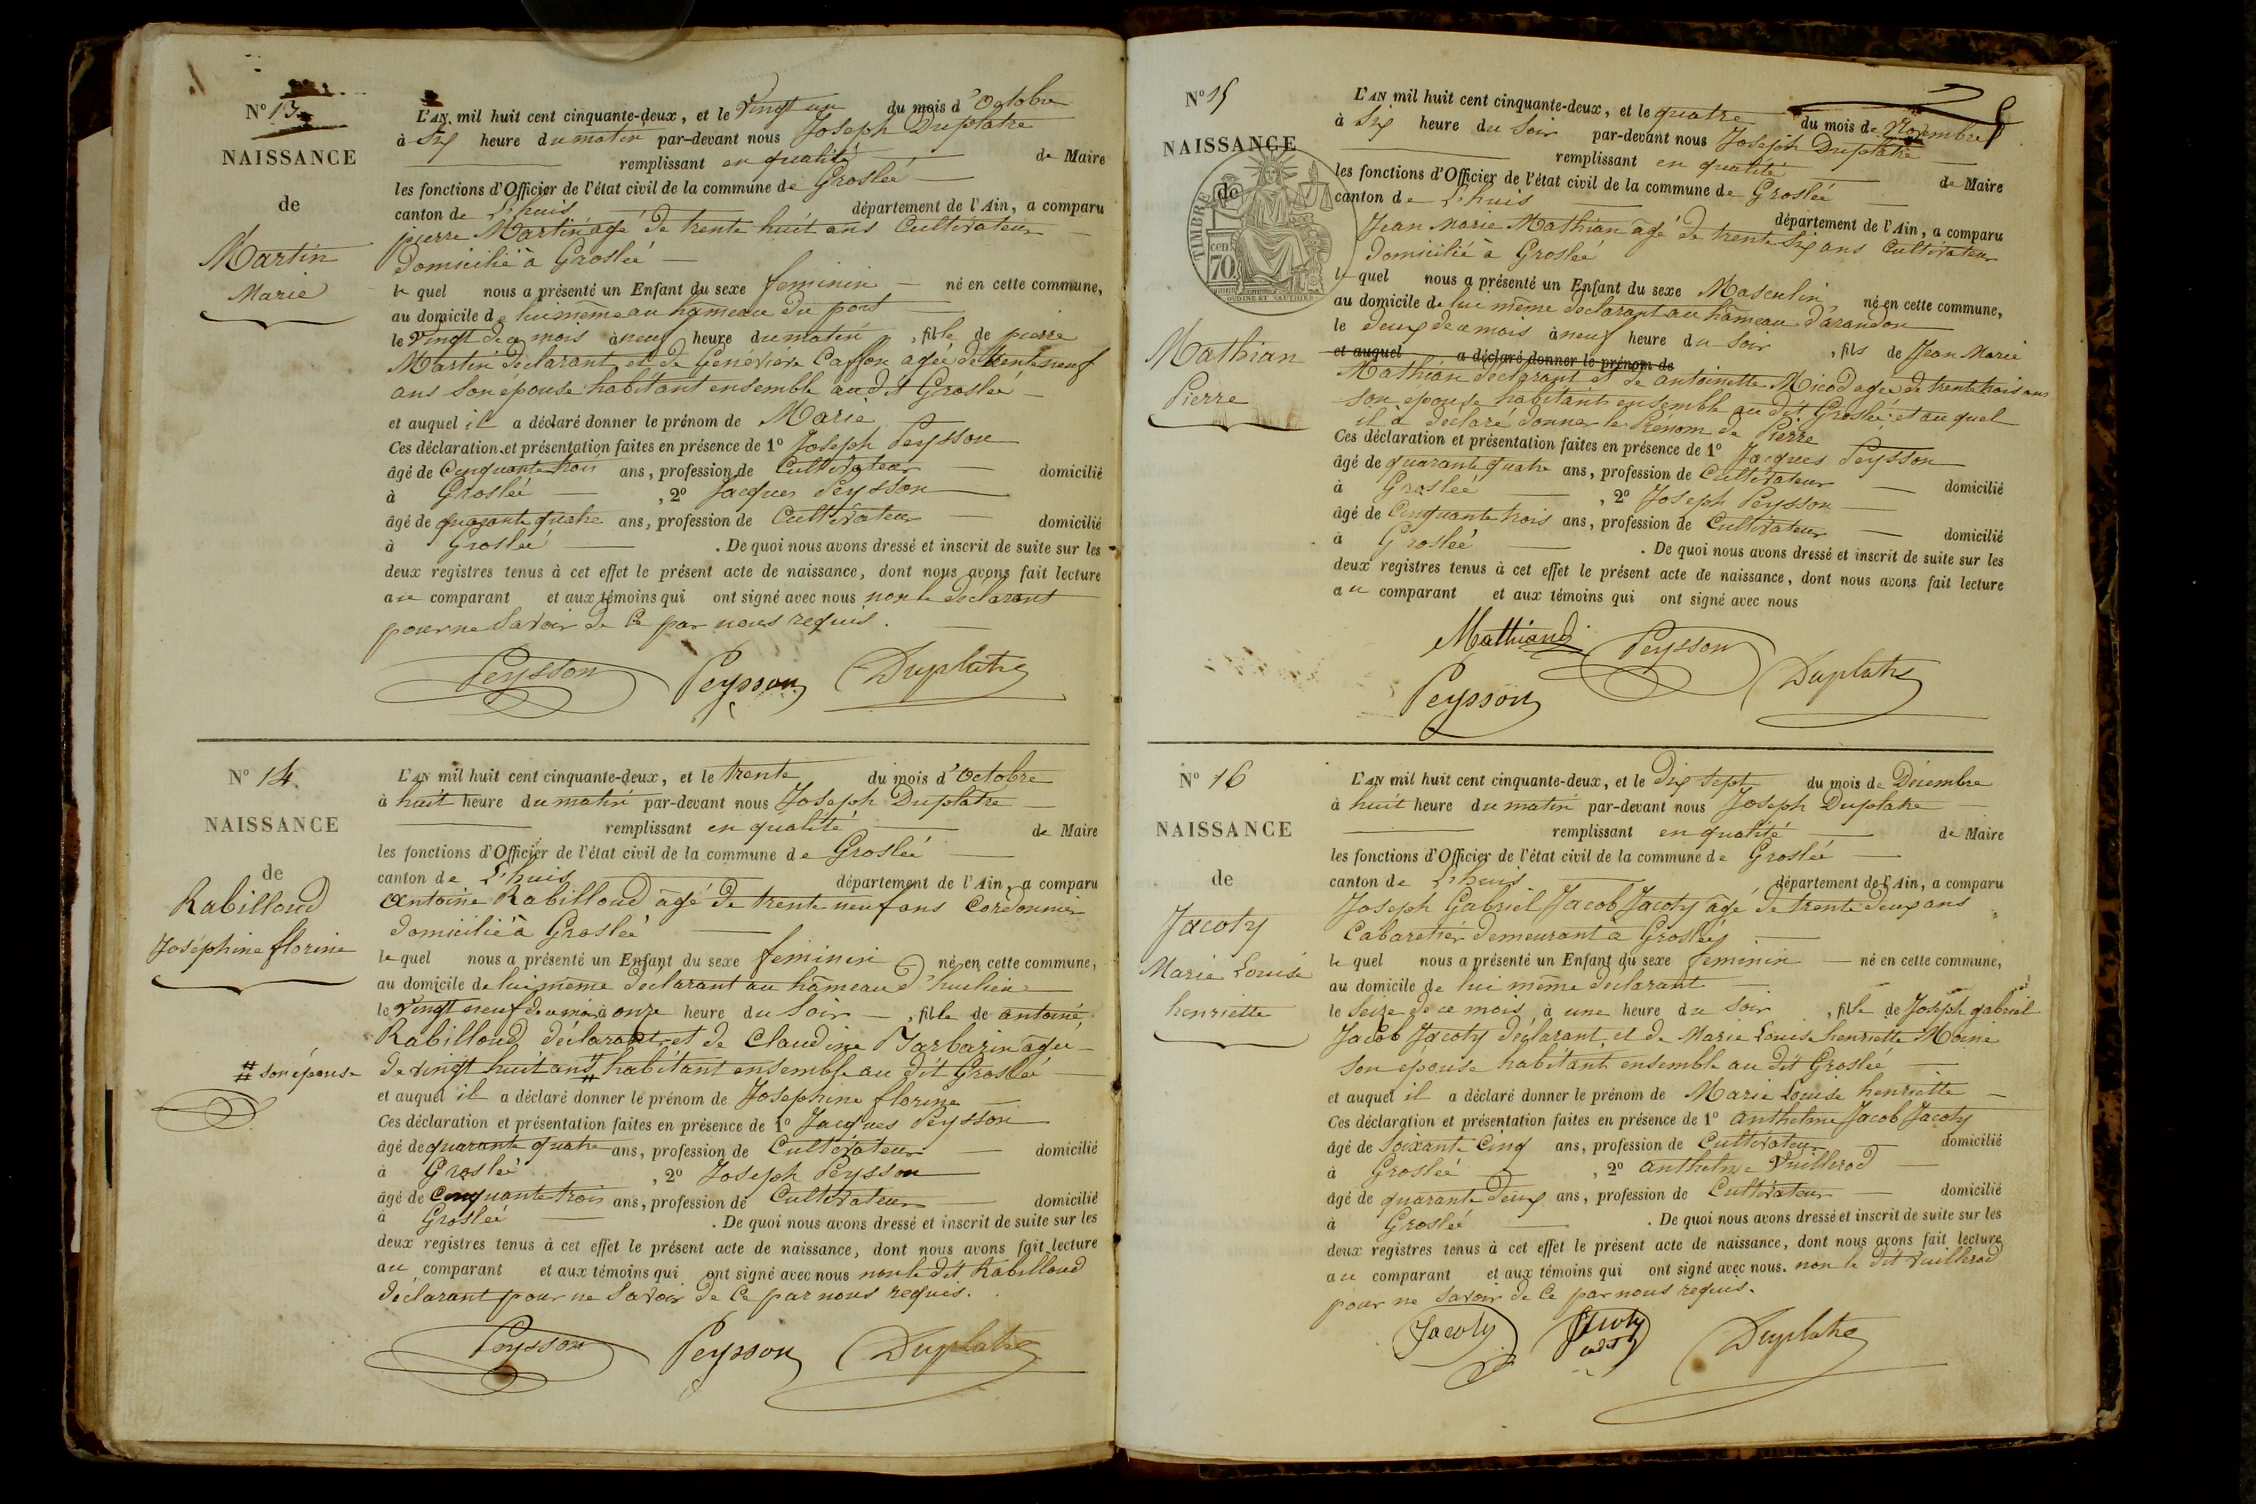 N° 13
NAISSANCE
de
Martin
Marie
L'AN mil huit cent cinquante-deux, et le Vingt un du mois d'Octobre
à Six heure du matin par-devant nous Joseph Duplatre
remplissant en qualité de Maire
les fonctions d'Officier de l'état civil de la commune de Groslée
canton de L'huis département de l'Ain, a comparu
pierre Martin agé de trente huit ans Cultivateur
domicilié à Groslée
le quel nous a présenté un Enfant du sexe feminin né en cette commune,
au domicile de lui même au hameau du port
le vingt de ce mois à neuf heure du matin, fille de pierre
Martin déclarant et de Genévière Caffon agée de trente neuf
ans son epouse habitant ensemble au dit Groslée
et auquel il a déclaré donner le prénom de Marie
Ces déclaration et présentation faites en présence de 1° Joseph Peysson
âgé de Cinquante trois ans, profession de Cultivateur domicilié
à Groslée, 2° Jacques Peysson
âgé de quarante quatre ans, profession de Cultivateur domicilié
à Groslée. De quoi nous avons dressé et inscrit de suite sur les
deux registres tenus à cet effet le présent acte de naissance, dont nous avons fait lecture
au comparant et aux témoins qui ont signé avec nous non le déclarant
pour ne Savoir de Ce par nous requis.
Peysson Peysson Duplatre
N° 14.
NAISSANCE
de
Rabilloud
Joséphine florine
# son épouse
L'AN mil huit cent cinquante-deux, et le trente du mois d'Octobre
à huit heure du matin par-devant nous Joseph Duplatre
remplissant en qualité de Maire
les fonctions d'Officier de l'état civil de la commune de Groslée
canton de L'huis département de l'Ain, a comparu
antoine Rabilloud agé de trente neuf ans Cordonnier
domicilié à Groslée
le quel nous a présenté un Enfant du sexe feminin né en cette commune,
au domicile de lui même déclarant au hameau
le Vingt neuf de ce mois à onze heure du Soir, fille de antoine
Rabilloud déclarant et de Claudine Barbarin agée
de vingt huit ans # habitant ensemble au dit Groslée
et auquel il a déclaré donner le prénom de Joséphine florine
Ces déclaration et présentation faites en présence de 1° Jacques Peysson
âgé de quarante quatre ans, profession de Cultivateur domicilié
à Groslée, 2° Joseph Peysson
âgé de Cinquante trois ans, profession de Cultivateur domicilié
à Groslée. De quoi nous avons dressé et inscrit de suite sur les
deux registres tenus à cet effet le présent acte de naissance, dont nous avons fait lecture
au comparant et aux témoins qui ont signé avec nous non le dit Rabilloud
déclarant pour ne Savoir de Ce par nous requis.
Peysson Peysson Duplatre
N° 15
NAISSANCE
de
TIMBRE
cent 70
OUDINÉ ET GAUTHIER
Mathian
Pierre
L'AN mil huit cent cinquante-deux, et le quatre du mois de Novembre
à Six heure du Soir par-devant nous Joseph Duplatre
remplissant en qualité de Maire
les fonctions d'Officier de l'état civil de la commune de Groslée
canton de L'huis département de l'Ain, a comparu
Jean Marie Mathian agé de trente Six ans Cultivateur
domicilié à Groslée
le quel nous a présenté un Enfant du sexe Masculin né en cette commune,
au domicile de lui même déclarant au hameau d'arandon
le deux de ce mois à neuf heure du Soir, fils de Jean Marie
et auquel a déclaré donner le prénom de
Mathian déclarant et de antoinette Micod agée de trente trois ans
son epouse habitant ensemble au dit Groslée, et au quel
il à déclaré donner le Prénom de Pierre
Ces déclaration et présentation faites en présence de 1° Jacques Peysson
âgé de quarante quatre ans, profession de Cultivateur domicilié
à Groslée, 2° Joseph Peysson
âgé de Cinquante trois ans, profession de Cultivateur domicilié
à Groslée. De quoi nous avons dressé et inscrit de suite sur les
deux registres tenus à cet effet le présent acte de naissance, dont nous avons fait lecture
au comparant et aux témoins qui ont signé avec nous
Mathiand Peysson
Peysson Duplatre
N° 16
NAISSANCE
de
Jacoty
Marie Louise
henriette
L'AN mil huit cent cinquante-deux, et le dix sept du mois de Décembre
à huit heure du matin par-devant nous Joseph Duplatre
remplissant en qualité de Maire
les fonctions d'Officier de l'état civil de la commune de Groslée
canton de L'huis département de l'Ain, a comparu
Joseph Gabriel Jacob Jacoty agé de trente deux ans
Cabaretier demeurant à Groslée
le quel nous a présenté un Enfant du sexe feminin né en cette commune,
au domicile de lui même déclarant
le Seize de ce mois, à une heure du Soir, fille de Joseph gabriel
Jacob Jacoty déclarant, et de Marie Louise henriette Moine
son épouse habitant ensemble au dit Groslée
et auquel il a déclaré donner le prénom de Marie Louise henriette
Ces déclaration et présentation faites en présence de 1° anthelme Jacob Jacoty
âgé de Soixante Cinq ans, profession de Cultivateur domicilié
à Groslée, 2° anthelme Vuillerod
âgé de quarante deux ans, profession de Cultivateur domicilié
à Groslée. De quoi nous avons dressé et inscrit de suite sur les
deux registres tenus à cet effet le présent acte de naissance, dont nous avons fait lecture
au comparant et aux témoins qui ont signé avec nous. non le dit Vuillerod
pour ne Savoir de Ce par nous requis.
Jacoty Jacoty cadet Duplatre